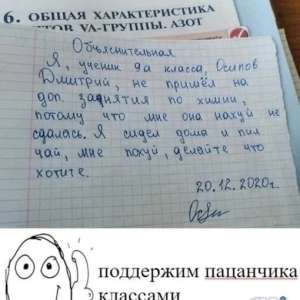 6. ОБЩАЯ ХАРАКТЕРИСТИКА
VA-ГРУППЫ. АЗОТ
Объяснительная
Я, ученик 9а класса, Осипов
Дмитрий, не пришёл на
доп. занятия по химии,
потому что мне она нахуй не
сдалась. Я сидел дома и пил
чай, мне похуй, делайте что
хотите.
20.12.2020г.
поддержим пацанчика
классами